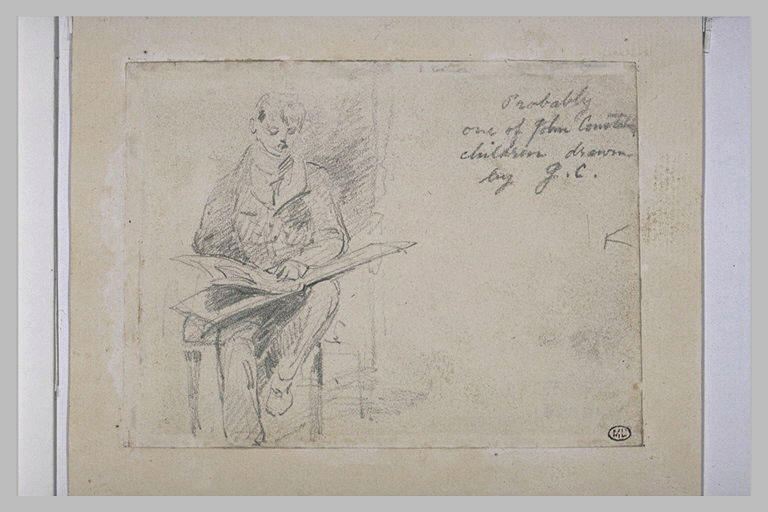 Probably
one of John Constable
children drawn
by J.C.